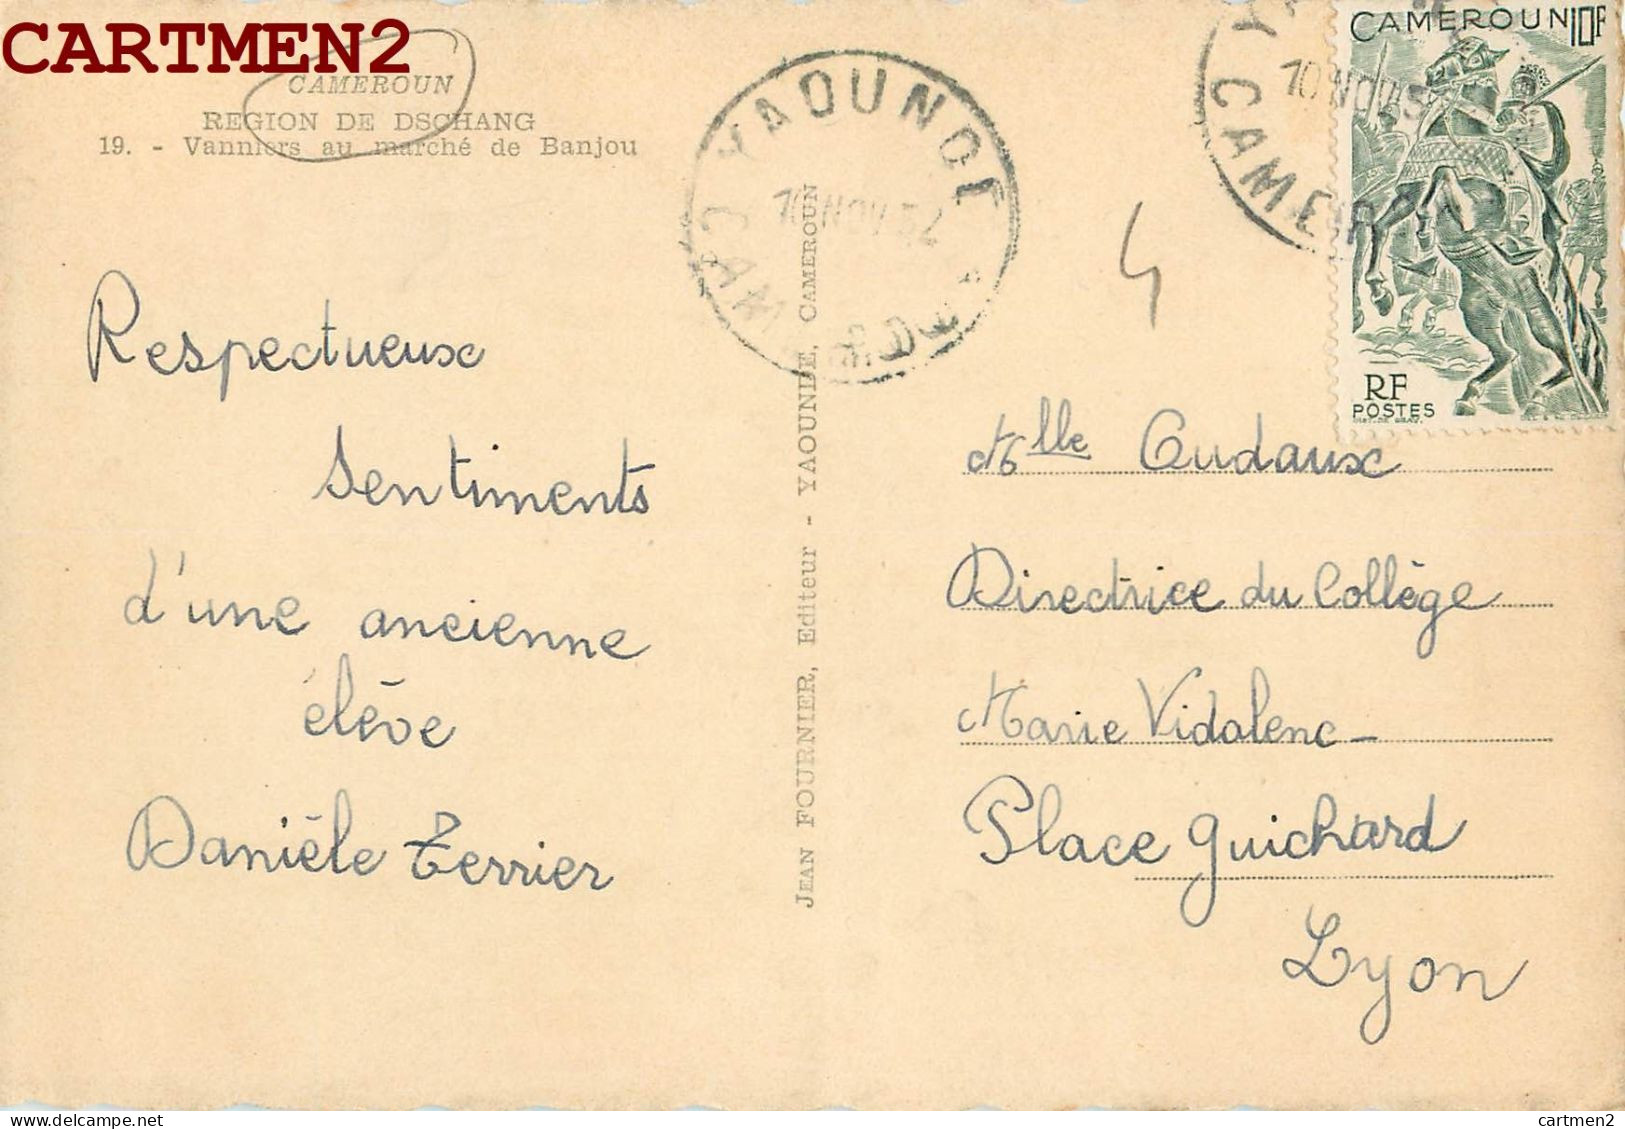 CARTMEN2
CAMEROUN
REGION DE DSCHANG
19. - Vanniers au marché de Banjou
Respectueux
sentiments
d'une ancienne
élève
Danièle Terrier
JEAN FOURNIER, Editeur - YAOUNDE, CAMEROUN
YAOUNDE
10 NOV 52
CAMEROUN
10 NOV 5
CAMER
CAMEROUN 10F
RF
POSTES
Mlle Oudaux
Directrice du Collège
Marie Vidalenc -
Place Guichard
Lyon
cartmen2